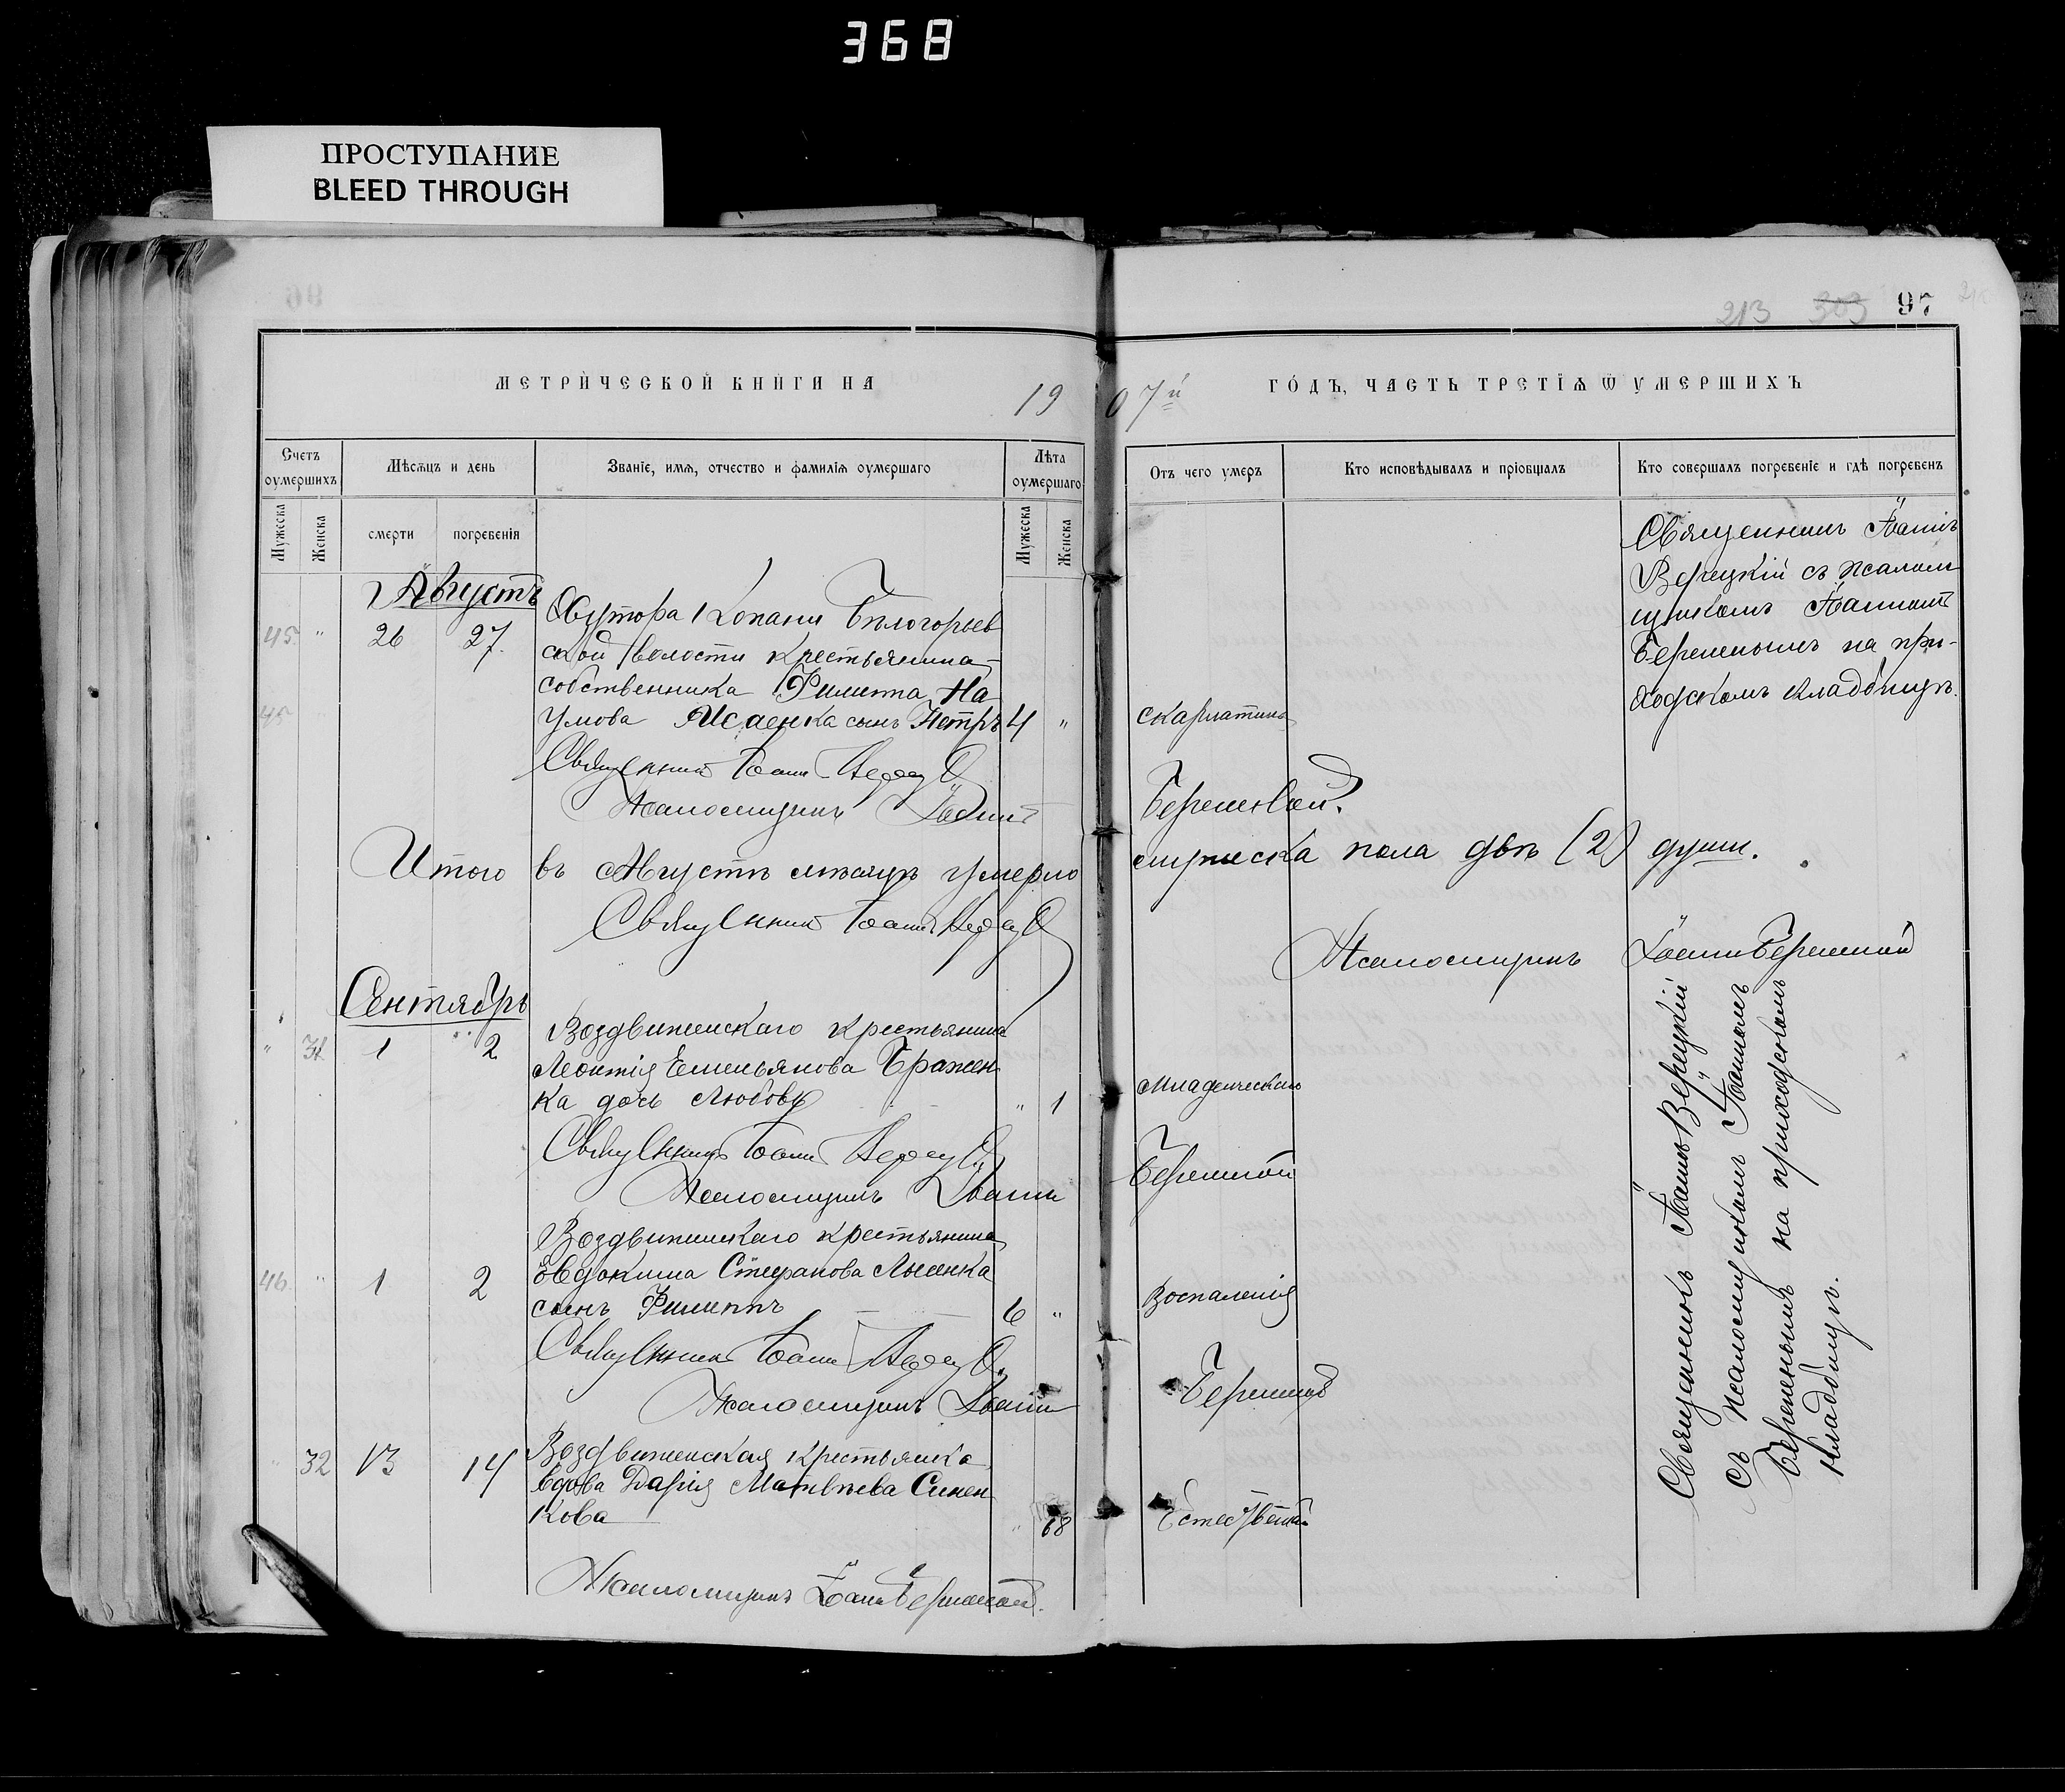 368
ПРОСТУПАНИЕ
BLEED THROUGH
213 303 97
МЕТРИЧЕСКОЙ КНИГИ НА 1907й ГОДЪ, ЧАСТЬ ТРЕТІЯ Ѿ УМЕРШИХЪ
Счетъ оумершихъ
Мѣсяцъ и день
Званіе, имя, отчество и фамилія оумершаго
Лѣта оумершаго
Отъ чего умеръ
Кто исповѣдывалъ и пріобщалъ
Кто совершалъ погребеніе и гдѣ погребенъ
Мужеска
Женска
смерти
погребенія
Мужеска
Женска
Августъ
45 " 26 27.
Хутора Копани Бѣлогорьев
ской волости крестьянина-
собственника Филиппа На
45
умова Исаенка сынъ Петръ 4 "
скарлатины
Священникъ Іоаннъ Верецкій съ псалом
щикомъ Іоанномъ
на при-
ходскомъ кладбищѣ.
Священникъ Іоаннъ
Псаломщикъ Іоаннъ
Итого въ Августѣ мѣсяцѣ умерло мужеска пола двѣ (2) души.
Священникъ Іоаннъ
Псаломщикъ Іоаннъ
Сентябрь
" 31 1 2
Воздвиженскаго крестьянина
Леонтія Емельянова Бражен
ка дочь Любовь " 1
Младенческой
Священникъ Іоаннъ
Псаломщикъ Іоаннъ
46 " 1 2
Воздвиженскаго крестьянина
Евдокима Стефанова Лысенка
сынъ Филиппъ 6 "
Воспаленія
Священникъ Іоаннъ
Псаломщикъ Іоаннъ
" 32 13 14
Воздвиженская крестьянка
вдова Дарія Матвѣева Синен
кова " 68
Псаломщикъ Іоаннъ
Священникъ Іоаннъ Верецкій
съ псаломщикомъ Іоанномъ
на приходскомъ
кладбищѣ.